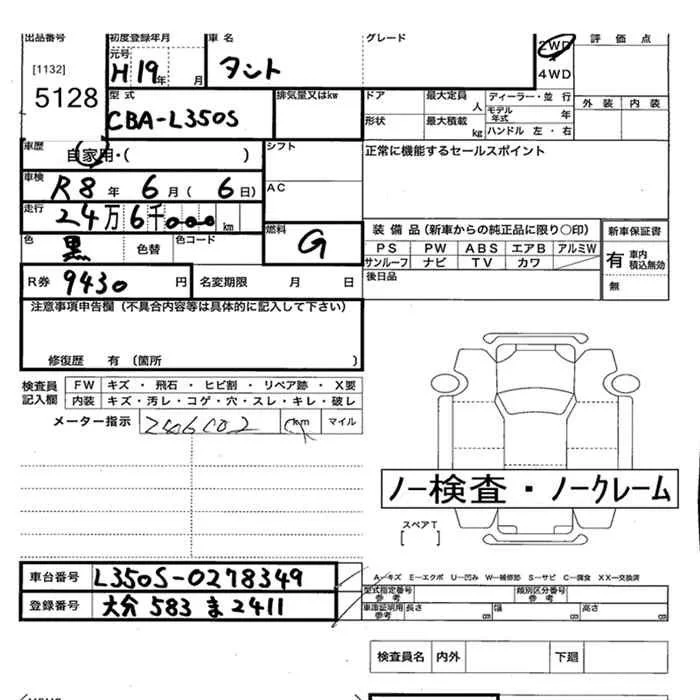 出品番号 初度登録年月 車名 グレード 2WD 評価点
元号
[1132] H 19年 月 タント 4WD
5128 型式 排気量又はkw ドア 最大定員 人 ディーラー・並行 外装 内装
CBA-L350S モデル年式 年
形状 最大積載 kg ハンドル 左・右
車歴 自家用・( ) シフト 正常に機能するセールスポイント
車検 R8年 6月( 6日) AC
走行 24万6千000km
装備品(新車からの純正品に限り〇印) 新車保証書
色 黒 色替 色コード 燃料 G PS PW ABS エアB アルミW 有 車内積込無効
サンルーフ ナビ TV カワ
R券 9430円 名変期限 月 日 後日品 無
注意事項申告欄(不具合内容等は具体的に記入して下さい)
修復歴 有(箇所 )
検査員記入欄 FW キズ・飛石・ヒビ割・リペア跡・X要
内装 キズ・汚レ・コゲ・穴・スレ・キレ・破レ
メーター指示 246002 km マイル
ノー検査・ノークレーム
スペアT
車台番号 L350S-0278349 A―キズ E―エクボ U―凹み W―補修跡 S―サビ C―腐食 XX―交換済
型式指定番号 参考 類別区分番号 参考
登録番号 大分 583 ま 2411 車庫証明用 参考 長さ 幅 高さ
検査員名 内外 下廻